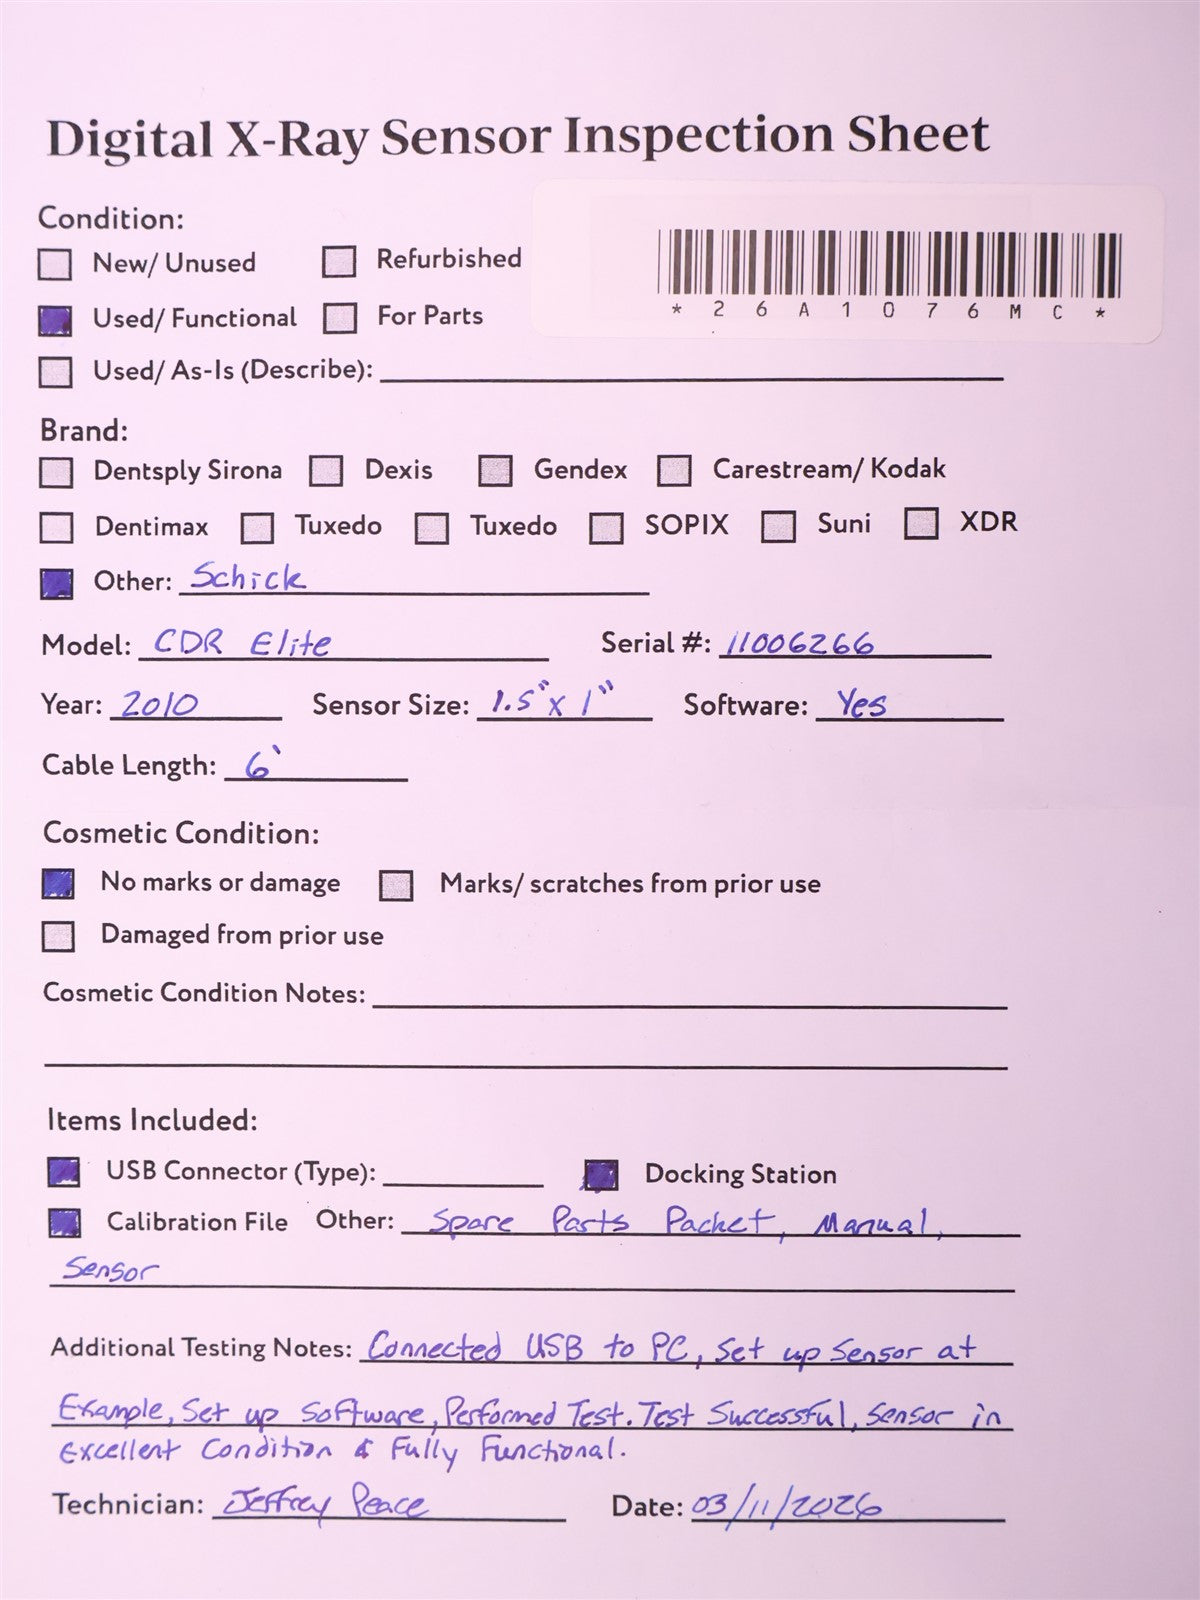 Digital X-Ray Sensor Inspection Sheet
Condition:
New/ Unused Refurbished
* 2 6 A 1 0 7 6 M C *
Used/ Functional For Parts
Used/ As-Is (Describe):
Brand:
Dentsply Sirona Dexis Gendex Carestream/ Kodak
Dentimax Tuxedo Tuxedo SOPIX Suni XDR
Other: Schick
Model: CDR Elite Serial #: 11006266
Year: 2010 Sensor Size: 1.5"x 1" Software: Yes
Cable Length: 6'
Cosmetic Condition:
No marks or damage Marks/ scratches from prior use
Damaged from prior use
Cosmetic Condition Notes:
Items Included:
USB Connector (Type): Docking Station
Calibration File Other: Spare Parts Packet, Manual,
Sensor
Additional Testing Notes: Connected USB to PC, Set up Sensor at
Example, Set up Software, Performed Test. Test Successful, Sensor in
Excellent Condition & Fully Functional.
Technician: Jeffrey Peace Date: 03/11/2026